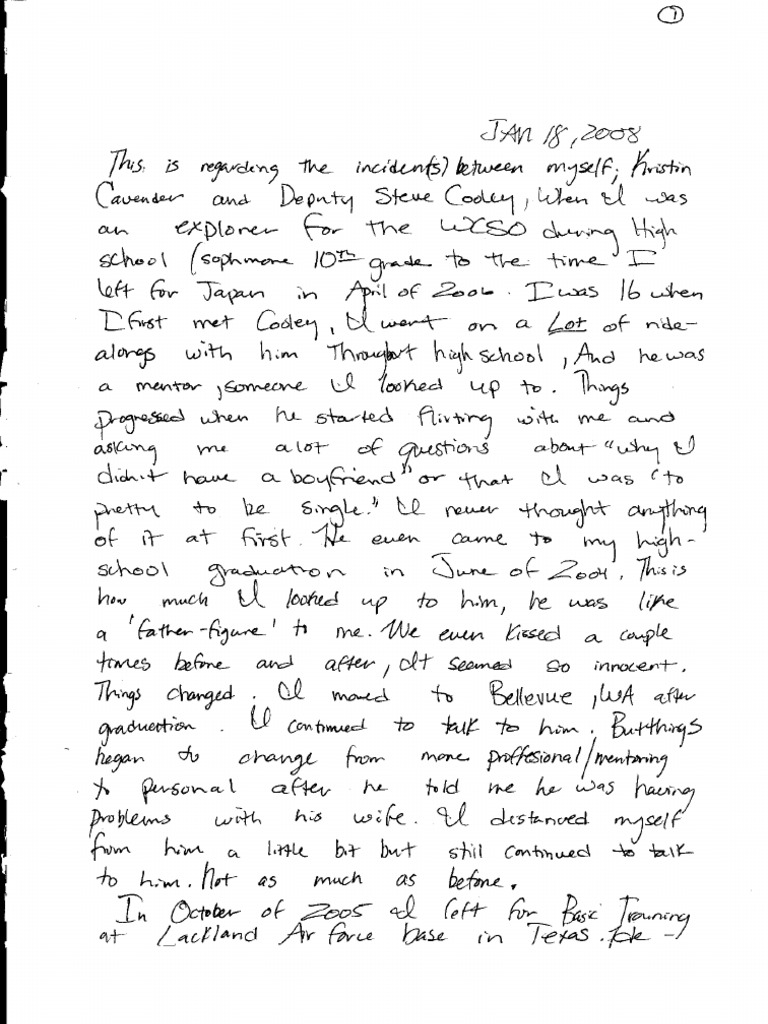 1
JAN 18, 2008
This is regarding the incident(s) between myself; Kristin
Cavender and Deputy Steve Cooley, When I was
an explorer for the WCSO during High
school (sophmore 10TH grade to the time I
left for Japan in April of 2006. I was 16 when
I first met Cooley, I went on a Lot of ride-
alongs with him Throughout high school, And he was
a mentor, someone I looked up to. Things
progressed when he started flirting with me and
asking me alot of questions about "why I
didn't have a boyfriend" or that I was "to
pretty to be single." I never thought anything
of it at first. He even came to my high-
school graduation in June of 2004. This is
how much I looked up to him, he was like
a 'father-figure' to me. We even kissed a couple
times before and after, It seemed so innocent.
Things changed. I moved to Bellevue, WA after
graduation. I continued to talk to him. But things
began to change from more proffesional/mentoring
to personal after he told me he was having
problems with his wife. I distanced myself
from him a little bit but still continued to talk
to him. Not as much as before.
In October of 2005 I left for Basic Training
at Lackland Air force base in Texas.